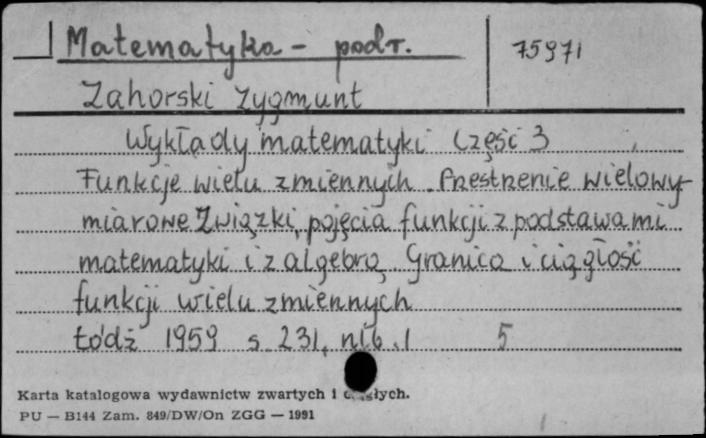 Matematyka - podr.
75971
Zahorski Zygmunt
Wykłady matematyki Część 3
Funkcje wielu zmiennych. Przestrzenie wielowy-
miarowe Związki, pojęcia funkcji z podstawami
matematyki i z algebrą Granica i ciągłość
funkcji wielu zmiennych
Łódź 1959 s. 231, nlb. 1 5
Karta katalogowa wydawnictw zwartych i ciągłych.
PU — B144 Zam. 849/DW/On ZGG — 1991